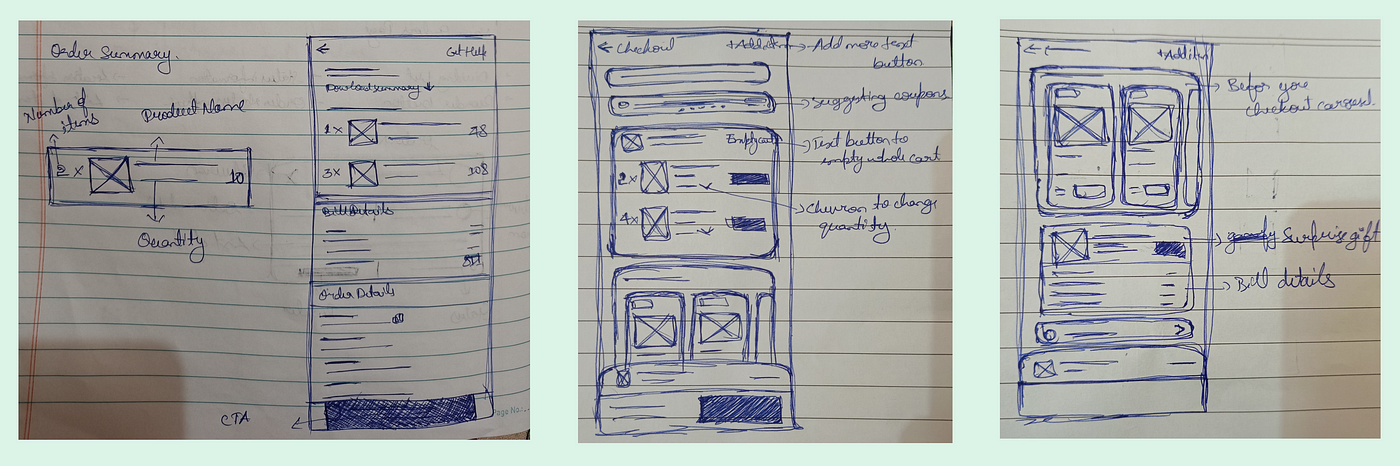 Order Summary.
Number of
items
Product Name
2 x
10
Quantity
CTA
←
Get Help
Download summary ↓
1 x
48
3 x
108
Bill Details
Order Details
Page No.
← Checkout
+Add item
Add more text
button
suggesting coupons
Empty cart
Text button to
empty whole cart
2x
4x
Chevron to change
quantity.
←
+Add item
Befor you
checkout carousel.
Surprise gift
Bill details